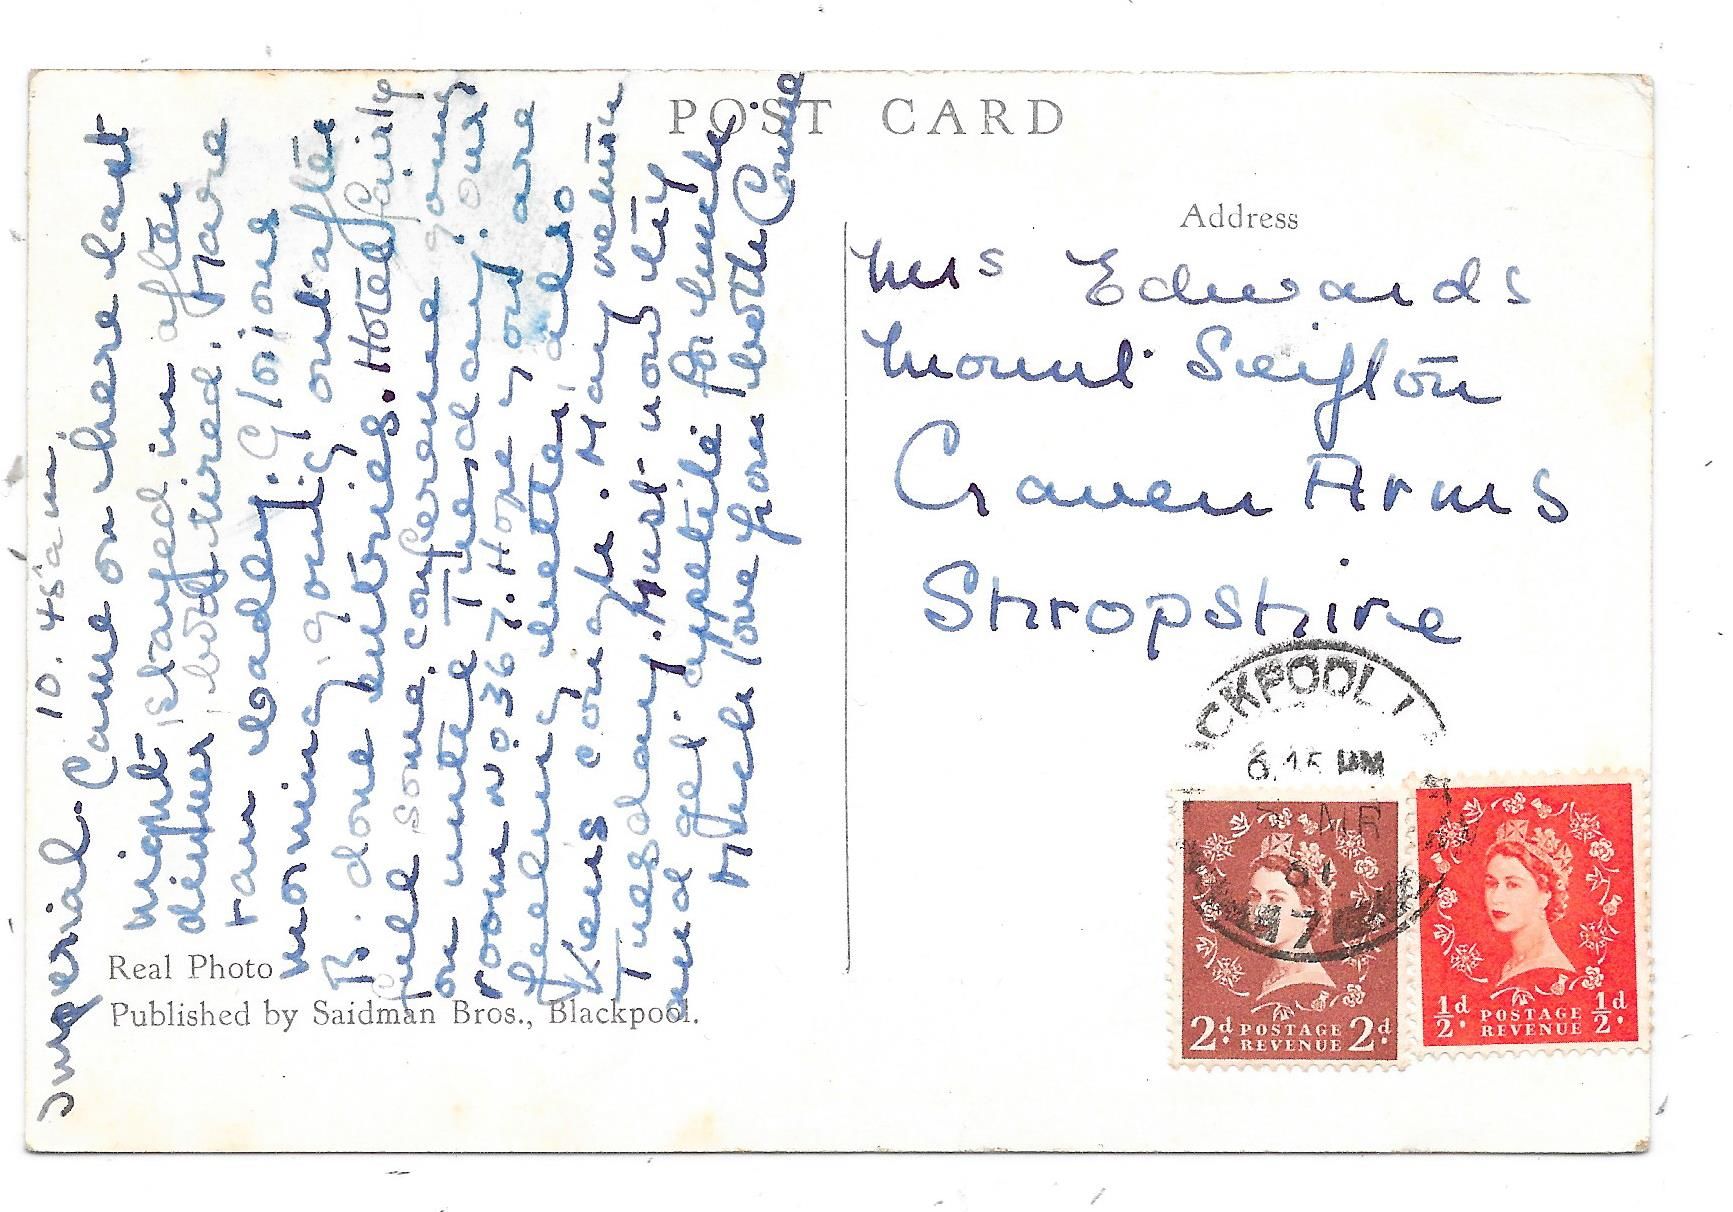 POST CARD
Address
Mrs Edwards
Mount Seifton
Craven Arms
Shropshire
Imperial. 10.45am
Came on here last
night stayed in after
dinner both tired. Have
ran loadley. Glorious
morning, going out after
B. done entries. Hotel fairly
full some conference going
on until Tuesday. our
room No 367. Hope you are
feeling better, also
Kens cough. May return
Tuesday. Must now try
and get appetite for lunch
Much love from both Connie
Real Photo
Published by Saidman Bros., Blackpool.
CKPOOL
6.15 PM
MR
61
2d POSTAGE 2d
REVENUE
½d POSTAGE ½d
REVENUE